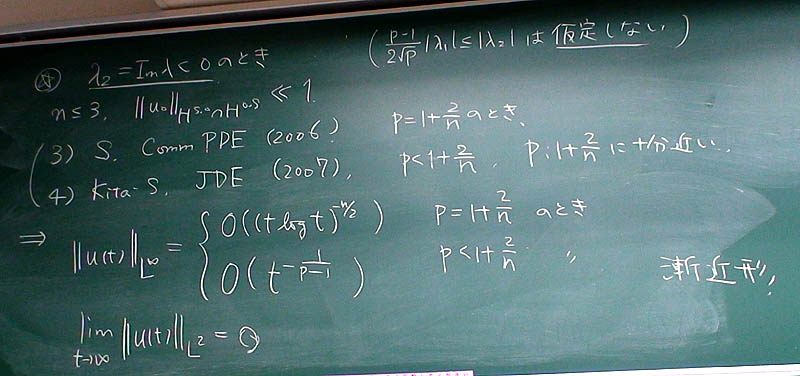 ☆ λ₂ = Imλ < 0 のとき ( p-1/2√p |λ₁| ≤ |λ₂| は 仮定しない )
n ≤ 3, ‖u₀‖_{H^{s,0}∩H^{0,s}} ≪ 1
3) S. Comm PDE (2006). p = 1+2/n のとき,
4) Kita-S, JDE (2007), p < 1+2/n, p : 1+2/n に十分近い.
⇒ ‖u(t)‖_{L^∞} = { O((t log t)^{-n/2}) p = 1+2/n のとき
O(t^{-1/(p-1)}) p < 1+2/n 〃
漸近形!
lim_{t→∞} ‖u(t)‖_{L²} = 0